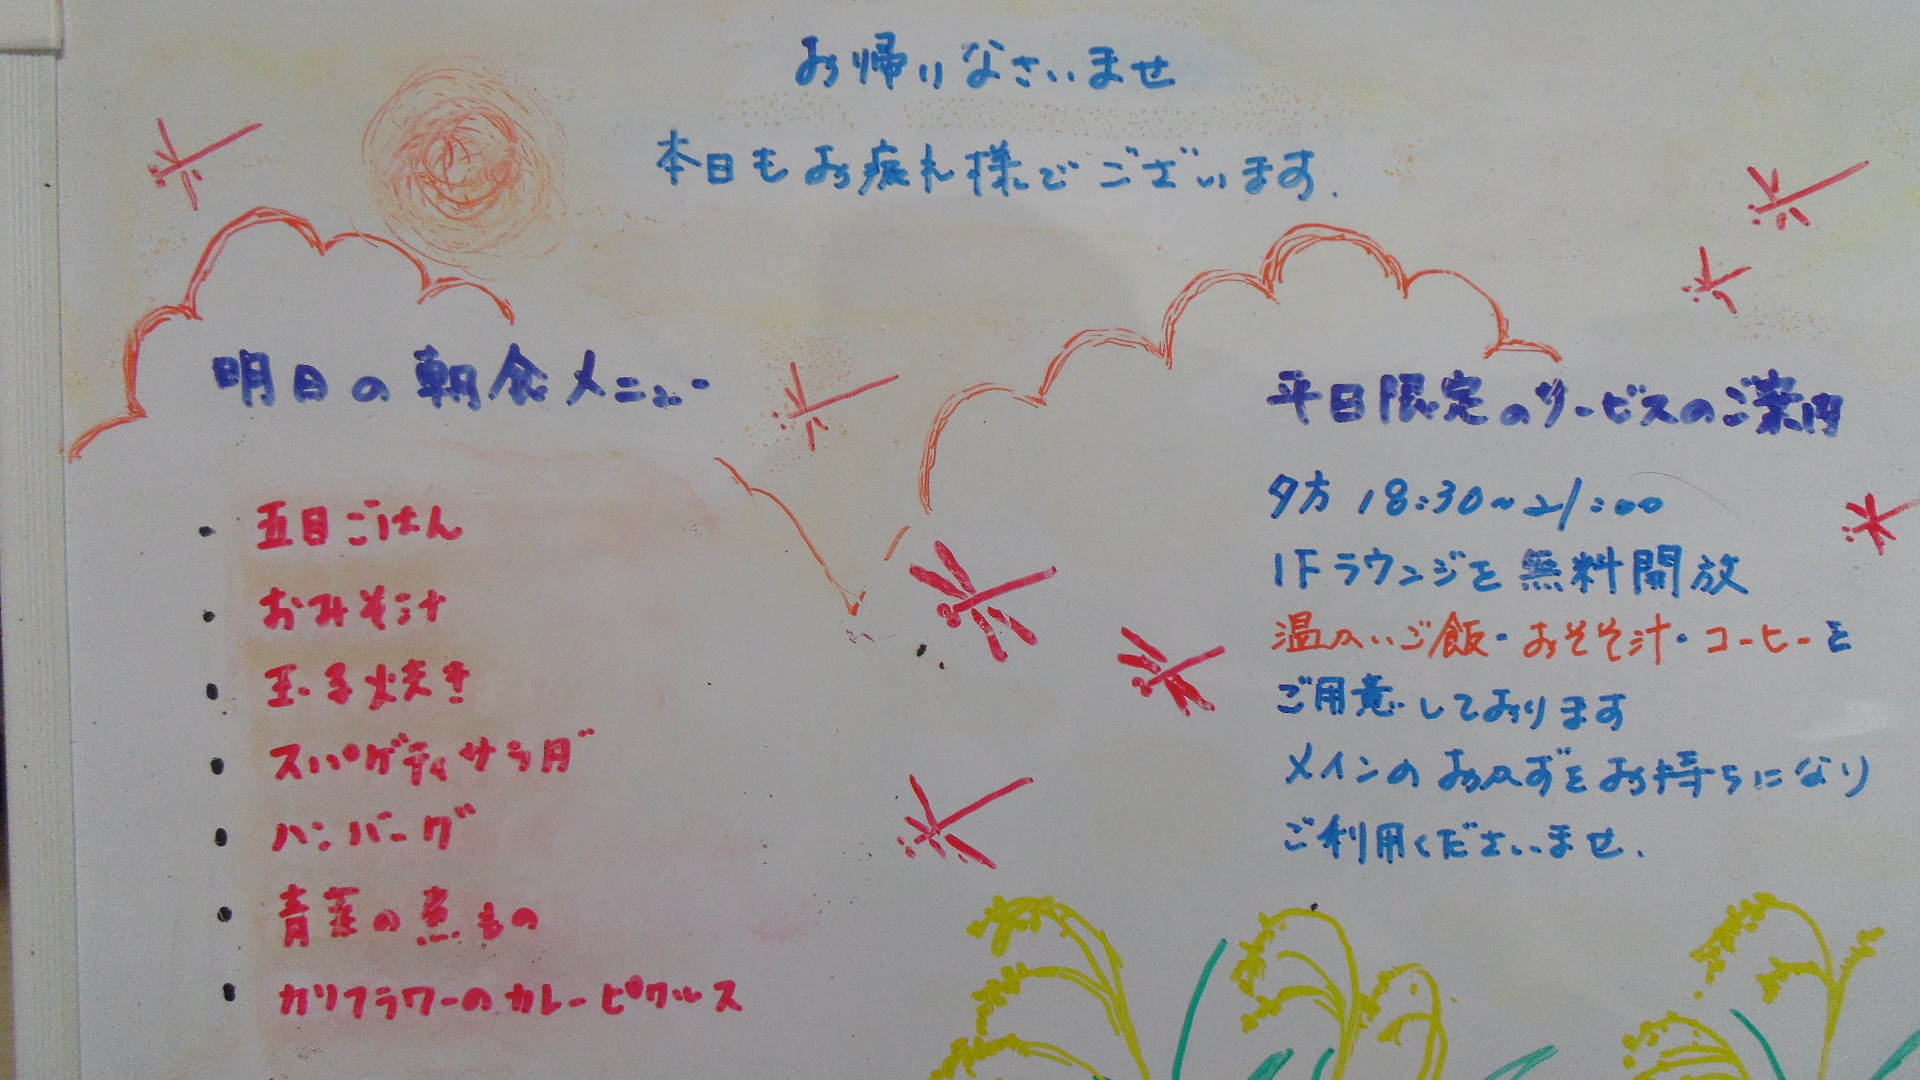 お帰りなさいませ
本日もお疲れ様でございます.
明日の朝食メニュー
・五目ごはん
・おみそ汁
・玉子焼き
・スパゲティサラダ
・ハンバーグ
・青菜の煮もの
・カリフラワーのカレーピクルス
平日限定のサービスのご案内
夕方 18:30~21:00
1Fラウンジを無料開放
温かいご飯・おみそ汁・コーヒーを
ご用意しております
メインのおかずをお持ちになり
ご利用くださいませ.